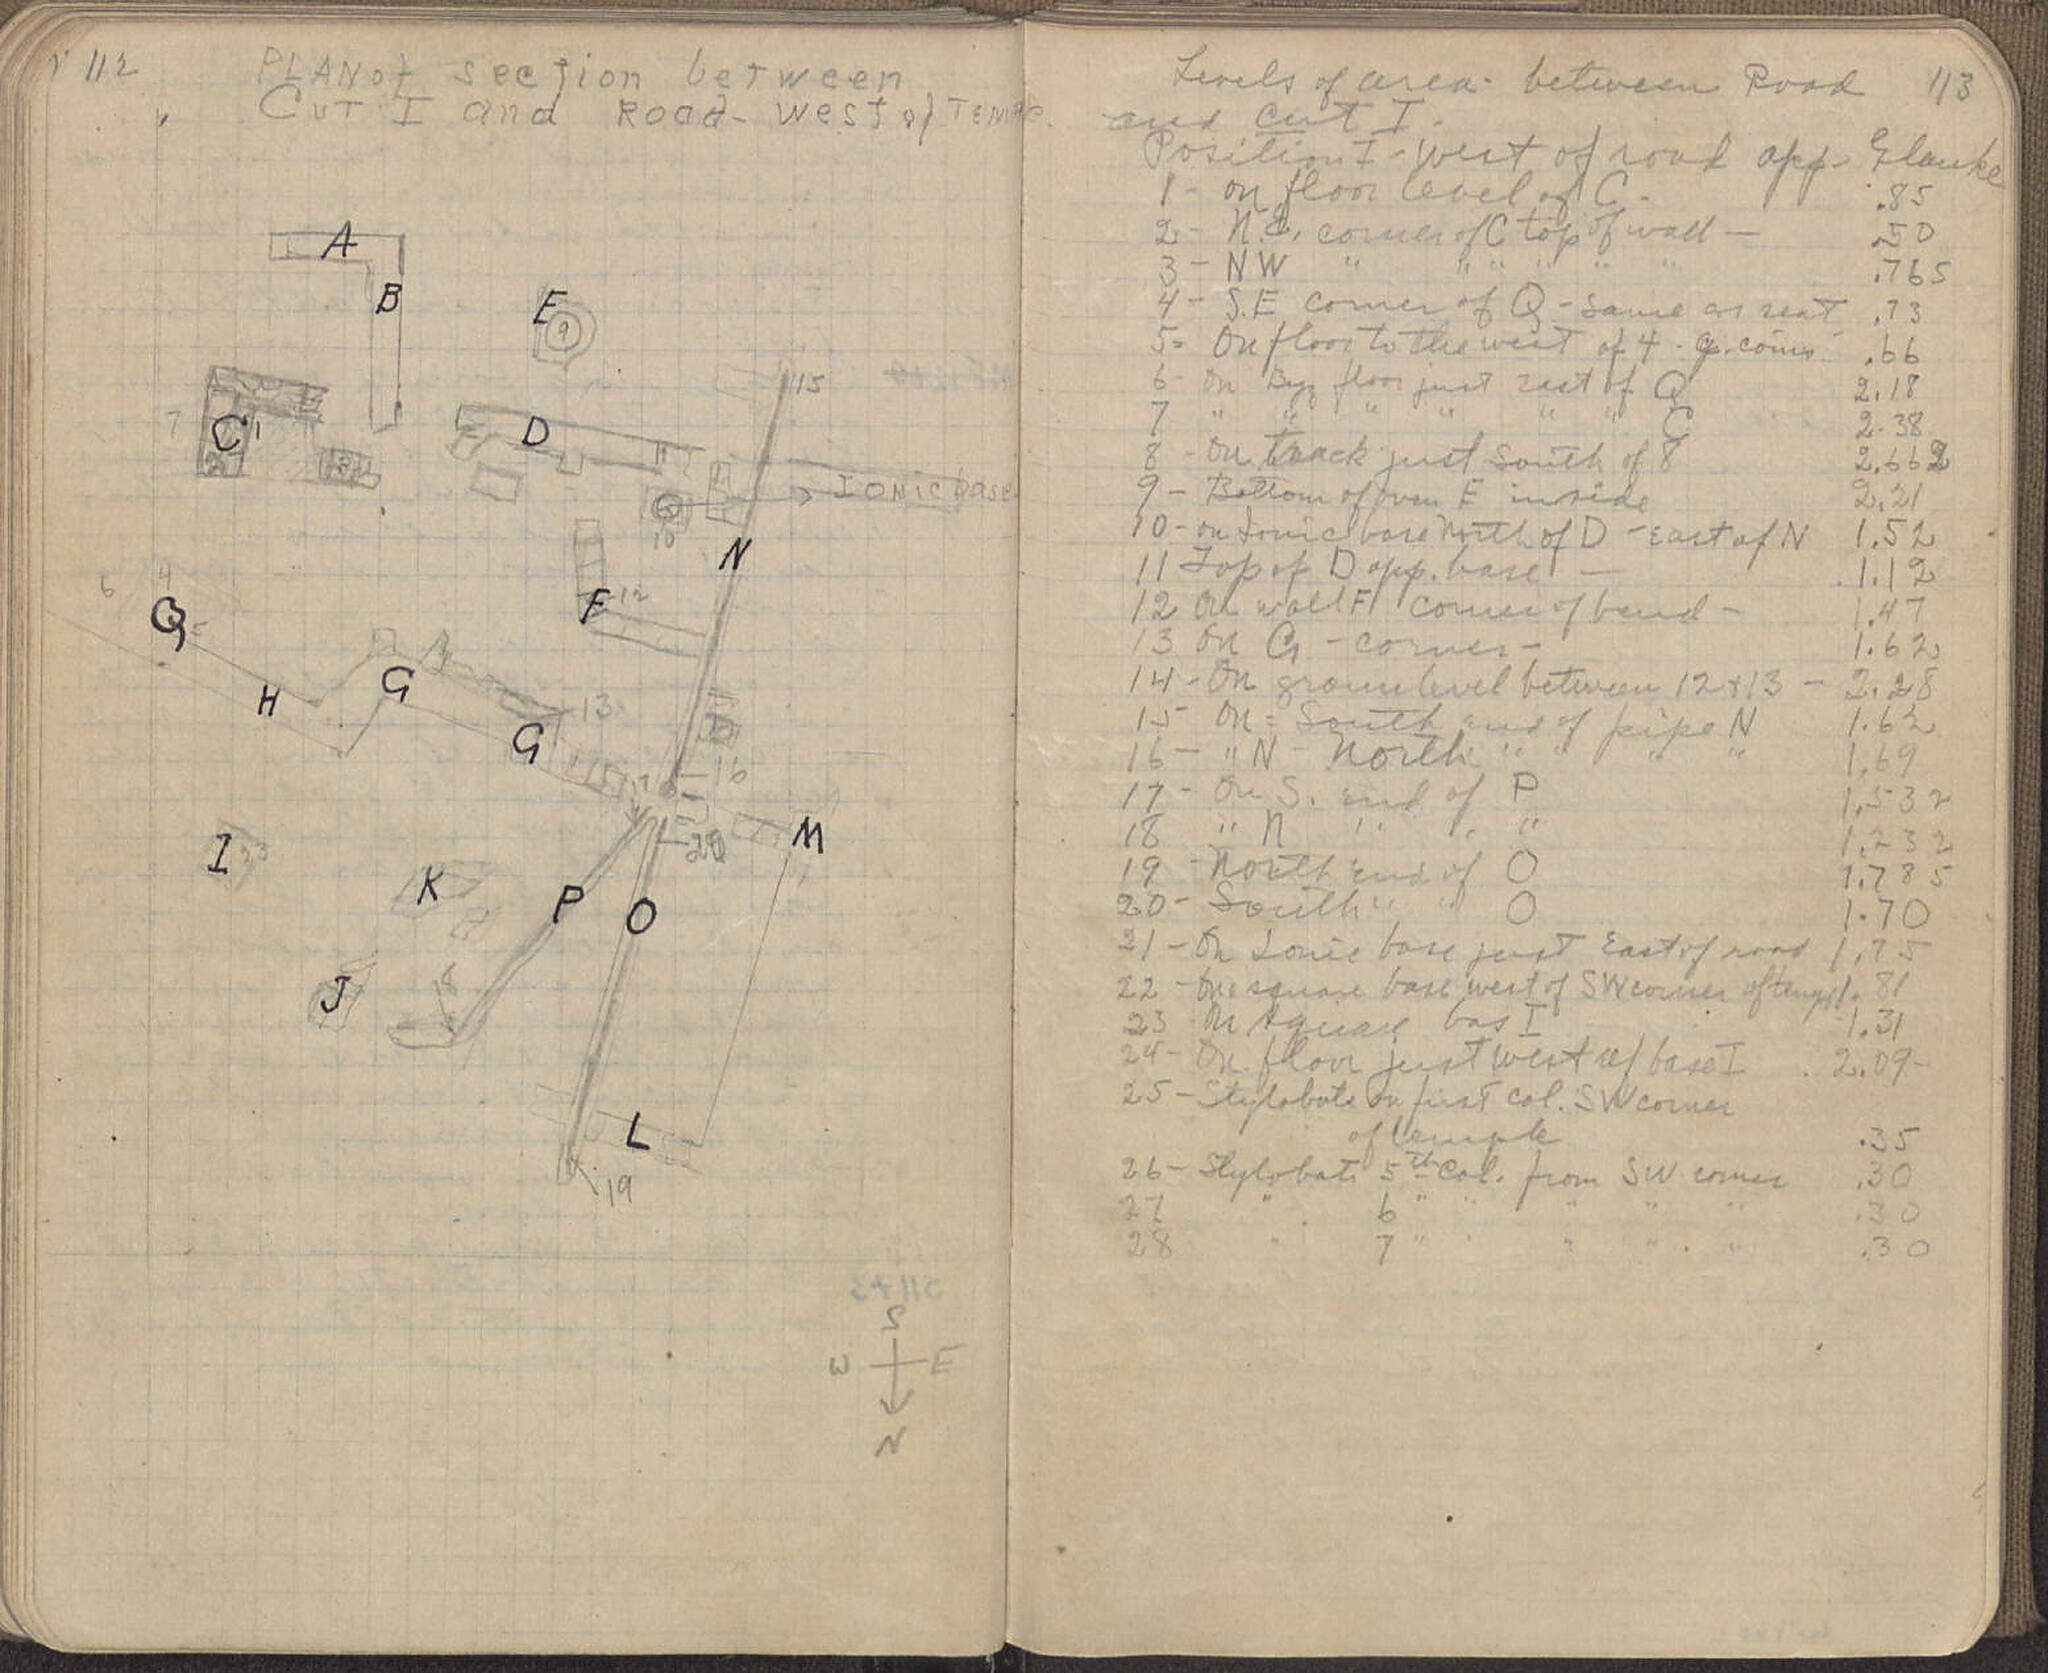 112
PLAN of section between
CUT I and Road - West of TEMPLE.
A
B
E
9
15
7
C 1
D
11
IONIC base
10
N
4
6
Q 5
F 12
H
G
13
G
17
16
20
M
I 23
K
P
O
J
18
L
19
S
W E
N
Levels of area between Road 113
and Cut I.
Position I - West of road opp. Glauke
1 - on floor level of C - .85
2 - N.E. corner of C top of wall — .50
3 - NW " " " " " " .765
4 - S.E corner of Q - same as rest .73
5 - On floor to the west of 4 - .66
6 - On Byz floor just east of Q 2.18
7 " " " " " " C 2.38
8 - On track just South of 8 2.662
9 - Bottom of oven E inside 2.21
10 - on Ionic base North of D - East of N 1.52
11 Top of D opp. base — 1.12
12 On wall F corner of bend - 1.47
13 On G - corner - 1.62
14 - On ground level between 12 + 13 - 2.28
15 On = South end of pipe N 1.62
16 - " N - North " " " " 1.69
17 - On S. end of P 1.532
18 " N " " " 1.232
19 - North end of O 1.785
20 - South " " O 1.70
21 - On Ionic base just East of road 1.75
22 - On square base west of SW corner of temple 1.81
23 On square bas I 1.31
24 - On floor just west of base I 2.09 -
25 - Stylobate on first col. SW corner
of temple .35
26 - Stylobate 5th Col. from SW corner .30
27 " 6 " " " " " .30
28 " 7 " " " " " .30